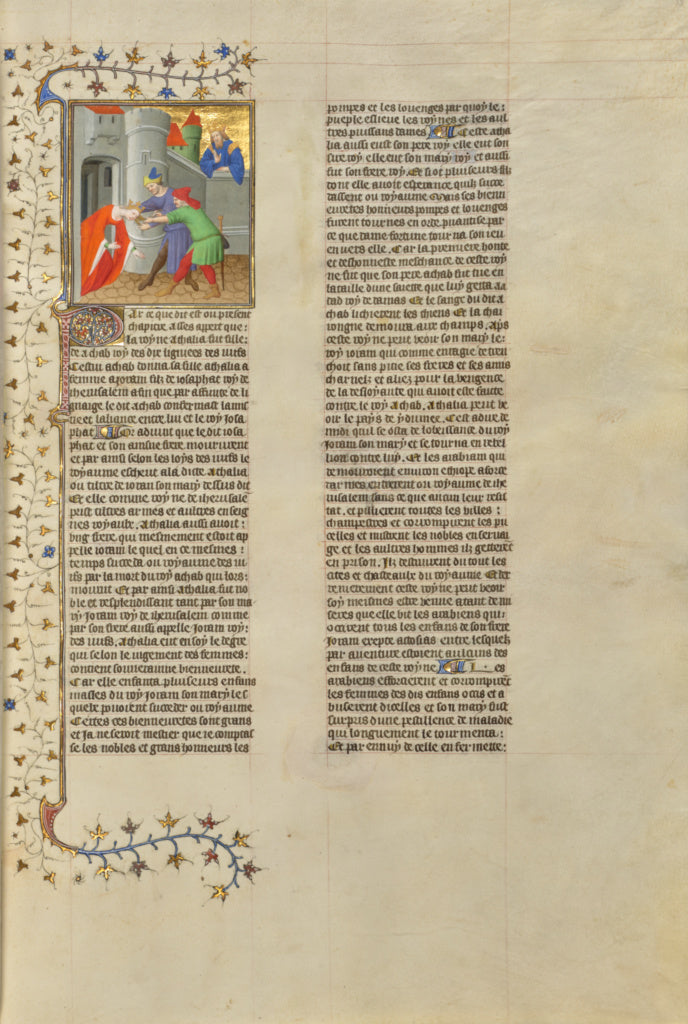 Par ce que dit est ou present
chapitre assés appert que :
la royne athalia fut fille :
de achab roy des dix lignees des iuifs
Cestui achab donna sa fille athalia a
femme a ioram filz de iosaphat roy de
iherusalem afin que par affinite de li
gnaige le dit achab confermast lami
tie et laliance entre lui et le roy iosa
phat Or aduint que le dit iosa
phat et son ainsne frere moururent
et par ainsi selon les loys des iuifs le
royaume escheut ala dicte athalia
ou tiltre de ioram son mary dessus dit
Et elle comme royne de iherusalē
prist tiltres armes et aultres enseig
nes royaulx. athalia aussi auoit :
vng frere qui mesmement estoit ap
pelle ioram le quel en ce mesmes :
temps succeda ou royaume des iu
ifs par la mort du roy achab qui lors :
mourut Et par ainsi athalia fut no
ble et resplendissant tant par son ma
ry ioram roy de iherusalem comme
par son frere aussi appelle ioram roy :
des iuifs. athalia eut en soy le degre
qui selon le iugement des femmes :
contient souueraine bieneurete.
Car elle enfanta pluseurs enfans
masles du roy ioram son mary les
quelx pouoient succeder ou royaume
Certes ces bieneuretes sont grans
et ia ne seroit mestier que ie comptas
se les nobles et grans honneurs les
pompes et les louenges par quoy le :
pueple eslieue les roynes et les aul
tres puissans dames Ceste atha
lia aussi eust son pere roy elle eut son
sire roy elle eut son mary roy et aussi
fut son frere roy. Et si ot pluseurs filz
dont elle auoit esperance quilz succe
dassent ou royaume Mais ses bien
euretes honneurs pompes et louenges
furent tournes en orde puantise par
ce que dame fortune tourna son ieu
enuers elle. Car la premiere honte
et deshonneste meschance de ceste roy
ne fut que son pere achab fut tue en
bataille dune saiette que luy getta a
dad roy de damas Et le sang du dit a
chab lichierent les chiens Et la cha
roigne demoura aux champs. aps
ceste royne peut veoir son mary le :
roy ioram qui comme enragie detren
choit sans pitie ses freres et ses amis
charnelz et aliez pour la vengence
de la desloyaute qui auoit este faicte
contre le roy achab. athalia peut ve
oir le pays de ydumee. Cest adire de
midi qui se osta de lobeissance du roy
ioram son mary et se tourna en rebel
lion contre luy. Et les arabiam qui
demouroient enuiron ethiope a force
darmes entrerent ou royaume de ihe
rusalem sans ce que aucun leur resis
tat. et pillierent toutes les villes :
champestres et corrompirent les pu
celles et mistrent les nobles en serua
ge et les aultres hommes ilz getterēt
en prison. Ilz destruirent du tout les
cites et chasteaulx du royaume Et der
renierement ceste royne peut veoir
soy mesmes estre venue a tant de mi
seres que elle vit les arabiens qui :
occirent tous les enfans de son frere
ioram excepte ocosias entre lesquelx
par auenture estoient aulcuns des
enfans de ceste royne Les
arabiens efforcierent et corrompirēt
les femmes des dis enfans occis et a
buserent dicelles et son mary fust
surpris dune pestilence de maladie
qui longuement le tourmenta :
Et par ennuy de celle enfermete :